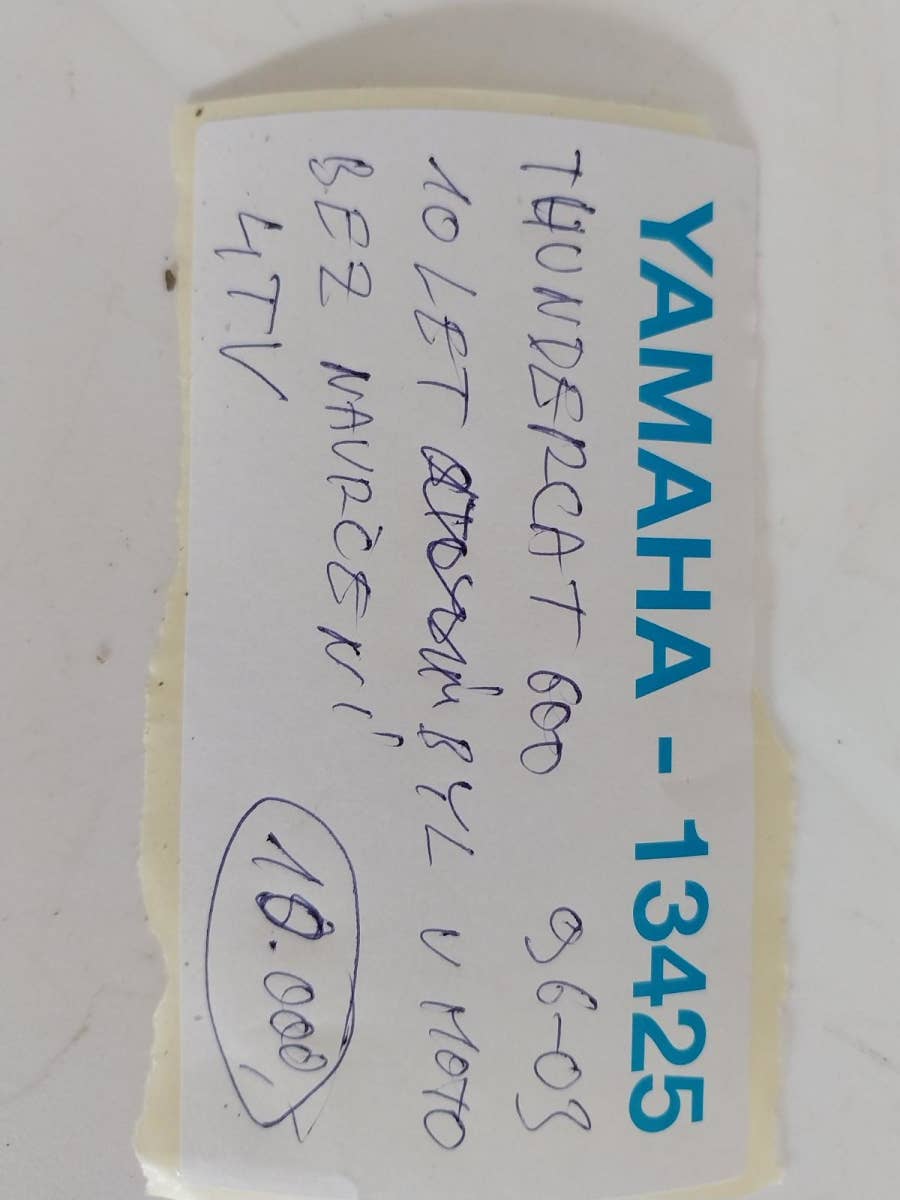 YAMAHA - 13425
THUNDERCAT 600 96-03
10 LET BYL V MOTO
BEZ NAVRČENÍ
4TV 10.000,